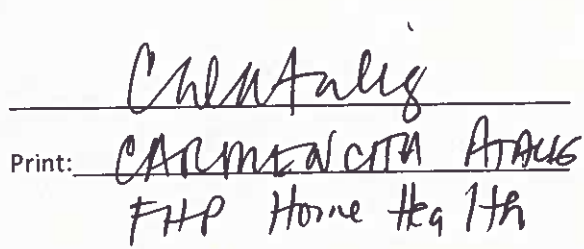 Print: CARMENCITA ATALIG
FHP Home Health